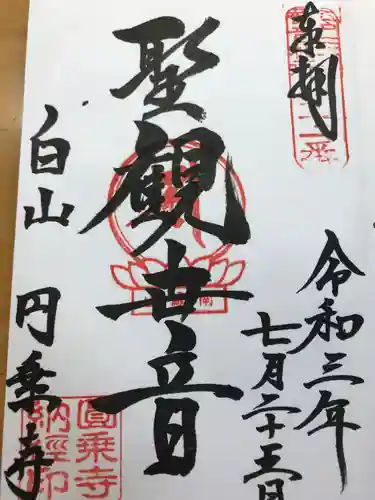 奉拝
令和三年
七月二十五日
聖観世音
白山 円乗寺
圓乗寺
納經印